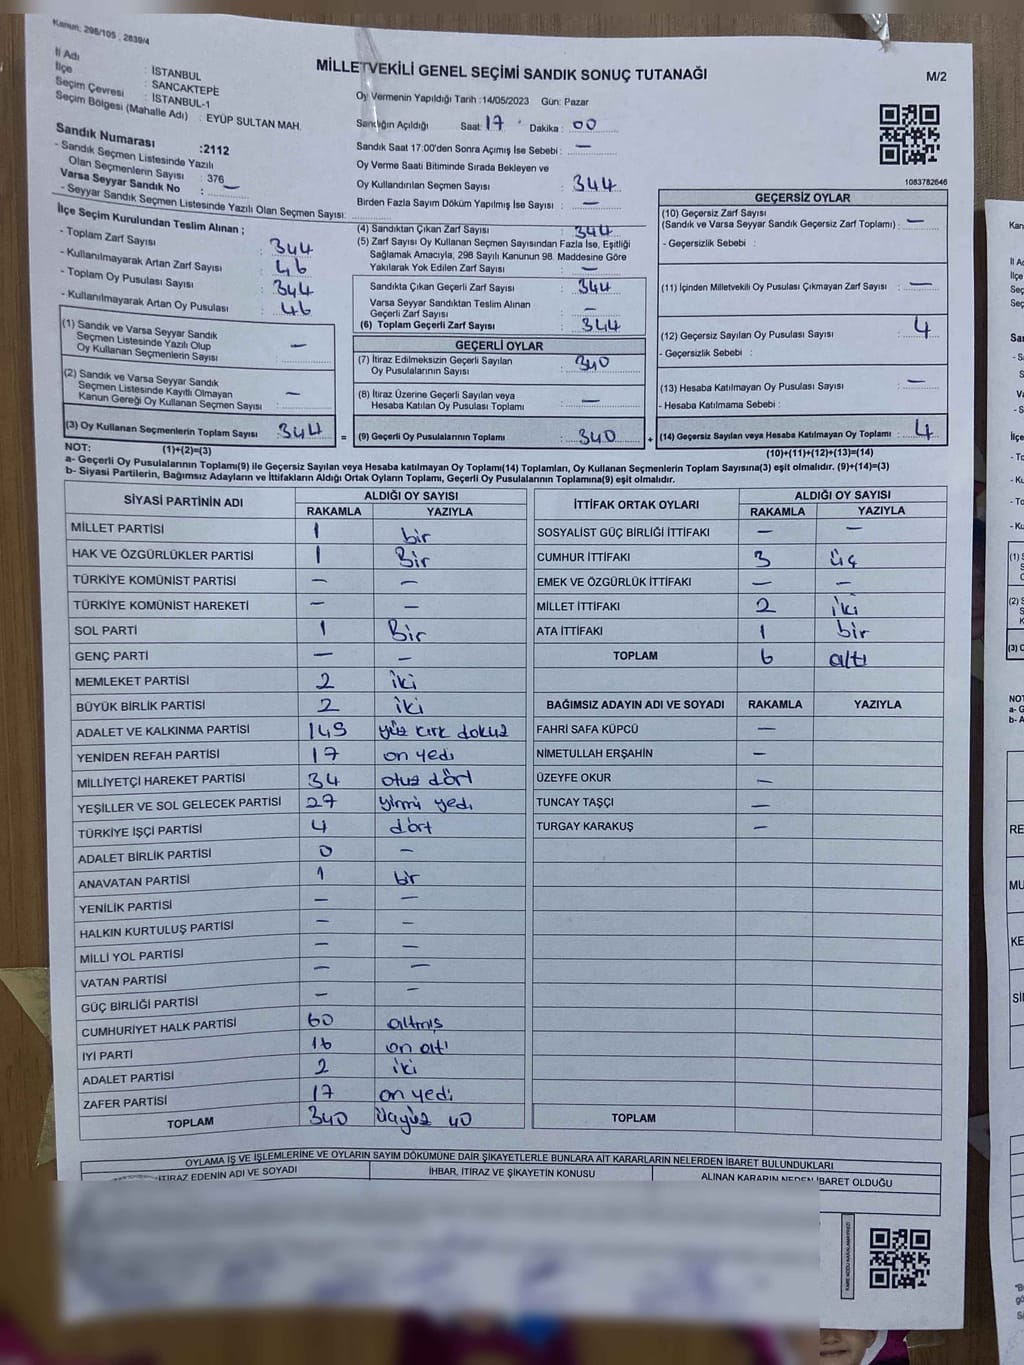 Kanun: 298/105 ; 2839/4
İl Adı : İSTANBUL
İlçe : SANCAKTEPE
Seçim Çevresi : İSTANBUL-1
Seçim Bölgesi (Mahalle Adı) : EYÜP SULTAN MAH.
MİLLETVEKİLİ GENEL SEÇİMİ SANDIK SONUÇ TUTANAĞI
M/2
Oy Vermenin Yapıldığı Tarih :14/05/2023 Gün: Pazar
Sandığın Açıldığı Saat: 17 Dakika : 00
Sandık Saat 17:00'den Sonra Açımış İse Sebebi : —
Oy Verme Saati Bitiminde Sırada Bekleyen ve
Oy Kullandırılan Seçmen Sayısı : 344
Birden Fazla Sayım Döküm Yapılmış İse Sayısı : —
1083782646
Sandık Numarası :2112
- Sandık Seçmen Listesinde Yazılı
Olan Seçmenlerin Sayısı : 376
Varsa Seyyar Sandık No : —
- Seyyar Sandık Seçmen Listesinde Yazılı Olan Seçmen Sayısı:
İlçe Seçim Kurulundan Teslim Alınan ;
- Toplam Zarf Sayısı : 344
- Kullanılmayarak Artan Zarf Sayısı : 46
- Toplam Oy Pusulası Sayısı : 344
- Kullanılmayarak Artan Oy Pusulası : 46
(1) Sandık ve Varsa Seyyar Sandık
Seçmen Listesinde Yazılı Olup
Oy Kullanan Seçmenlerin Sayısı : —
(2) Sandık ve Varsa Seyyar Sandık
Seçmen Listesinde Kayıtlı Olmayan
Kanun Gereği Oy Kullanan Seçmen Sayısı : —
(3) Oy Kullanan Seçmenlerin Toplam Sayısı : 344
(1)+(2)=(3)
(4) Sandıktan Çıkan Zarf Sayısı : 344
(5) Zarf Sayısı Oy Kullanan Seçmen Sayısından Fazla İse, Eşitliği
Sağlamak Amacıyla, 298 Sayılı Kanunun 98. Maddesine Göre
Yakılarak Yok Edilen Zarf Sayısı : —
Sandıkta Çıkan Geçerli Zarf Sayısı : 344
Varsa Seyyar Sandıktan Teslim Alınan
Geçerli Zarf Sayısı : —
(6) Toplam Geçerli Zarf Sayısı : 344
GEÇERLİ OYLAR
(7) İtiraz Edilmeksizin Geçerli Sayılan
Oy Pusulalarının Sayısı : 340
(8) İtiraz Üzerine Geçerli Sayılan veya
Hesaba Katılan Oy Pusulası Toplamı : —
= (9) Geçerli Oy Pusulalarının Toplamı : 340 +
GEÇERSİZ OYLAR
(10) Geçersiz Zarf Sayısı
(Sandık ve Varsa Seyyar Sandık Geçersiz Zarf Toplamı) : —
- Geçersizlik Sebebi :
(11) İçinden Milletvekili Oy Pusulası Çıkmayan Zarf Sayısı : —
(12) Geçersiz Sayılan Oy Pusulası Sayısı : 4
- Geçersizlik Sebebi :
(13) Hesaba Katılmayan Oy Pusulası Sayısı : —
- Hesaba Katılmama Sebebi :
(14) Geçersiz Sayılan veya Hesaba Katılmayan Oy Toplamı : 4
(10)+(11)+(12)+(13)=(14)
NOT:
a- Geçerli Oy Pusulalarının Toplamı(9) ile Geçersiz Sayılan veya Hesaba katılmayan Oy Toplamı(14) Toplamları, Oy Kullanan Seçmenlerin Toplam Sayısına(3) eşit olmalıdır. (9)+(14)=(3)
b- Siyasi Partilerin, Bağımsız Adayların ve İttifakların Aldığı Ortak Oyların Toplamı, Geçerli Oy Pusulalarının Toplamına(9) eşit olmalıdır.
SİYASİ PARTİNİN ADI ALDIĞI OY SAYISI
RAKAMLA YAZIYLA
MİLLET PARTİSİ 1 bir
HAK VE ÖZGÜRLÜKLER PARTİSİ 1 Bir
TÜRKİYE KOMÜNİST PARTİSİ — —
TÜRKİYE KOMÜNİST HAREKETİ — —
SOL PARTİ 1 Bir
GENÇ PARTİ — —
MEMLEKET PARTİSİ 2 iki
BÜYÜK BİRLİK PARTİSİ 2 iki
ADALET VE KALKINMA PARTİSİ 149 yüz kırk dokuz
YENİDEN REFAH PARTİSİ 17 on yedi
MİLLİYETÇİ HAREKET PARTİSİ 34 otuz dört
YEŞİLLER VE SOL GELECEK PARTİSİ 27 yirmi yedi
TÜRKİYE İŞÇİ PARTİSİ 4 dört
ADALET BİRLİK PARTİSİ 0 —
ANAVATAN PARTİSİ 1 bir
YENİLİK PARTİSİ — —
HALKIN KURTULUŞ PARTİSİ — —
MİLLİ YOL PARTİSİ — —
VATAN PARTİSİ — —
GÜÇ BİRLİĞİ PARTİSİ — —
CUMHURİYET HALK PARTİSİ 60 altmış
İYİ PARTİ 16 on altı
ADALET PARTİSİ 2 iki
ZAFER PARTİSİ 17 on yedi
TOPLAM 340 üçyüz 40
İTTİFAK ORTAK OYLARI ALDIĞI OY SAYISI
RAKAMLA YAZIYLA
SOSYALİST GÜÇ BİRLİĞİ İTTİFAKI — —
CUMHUR İTTİFAKI 3 üç
EMEK VE ÖZGÜRLÜK İTTİFAKI — —
MİLLET İTTİFAKI 2 iki
ATA İTTİFAKI 1 bir
TOPLAM 6 altı
BAĞIMSIZ ADAYIN ADI VE SOYADI RAKAMLA YAZIYLA
FAHRİ SAFA KÜPCÜ —
NİMETULLAH ERŞAHİN —
ÜZEYFE OKUR —
TUNCAY TAŞÇI —
TURGAY KARAKUŞ —
TOPLAM
OYLAMA İŞ VE İŞLEMLERİNE VE OYLARIN SAYIM DÖKÜMÜNE DAİR ŞİKAYETLERLE BUNLARA AİT KARARLARIN NELERDEN İBARET BULUNDUKLARI
İTİRAZ EDENİN ADI VE SOYADI İHBAR, İTİRAZ VE ŞİKAYETİN KONUSU ALINAN KARARIN NEDEN İBARET OLDUĞU